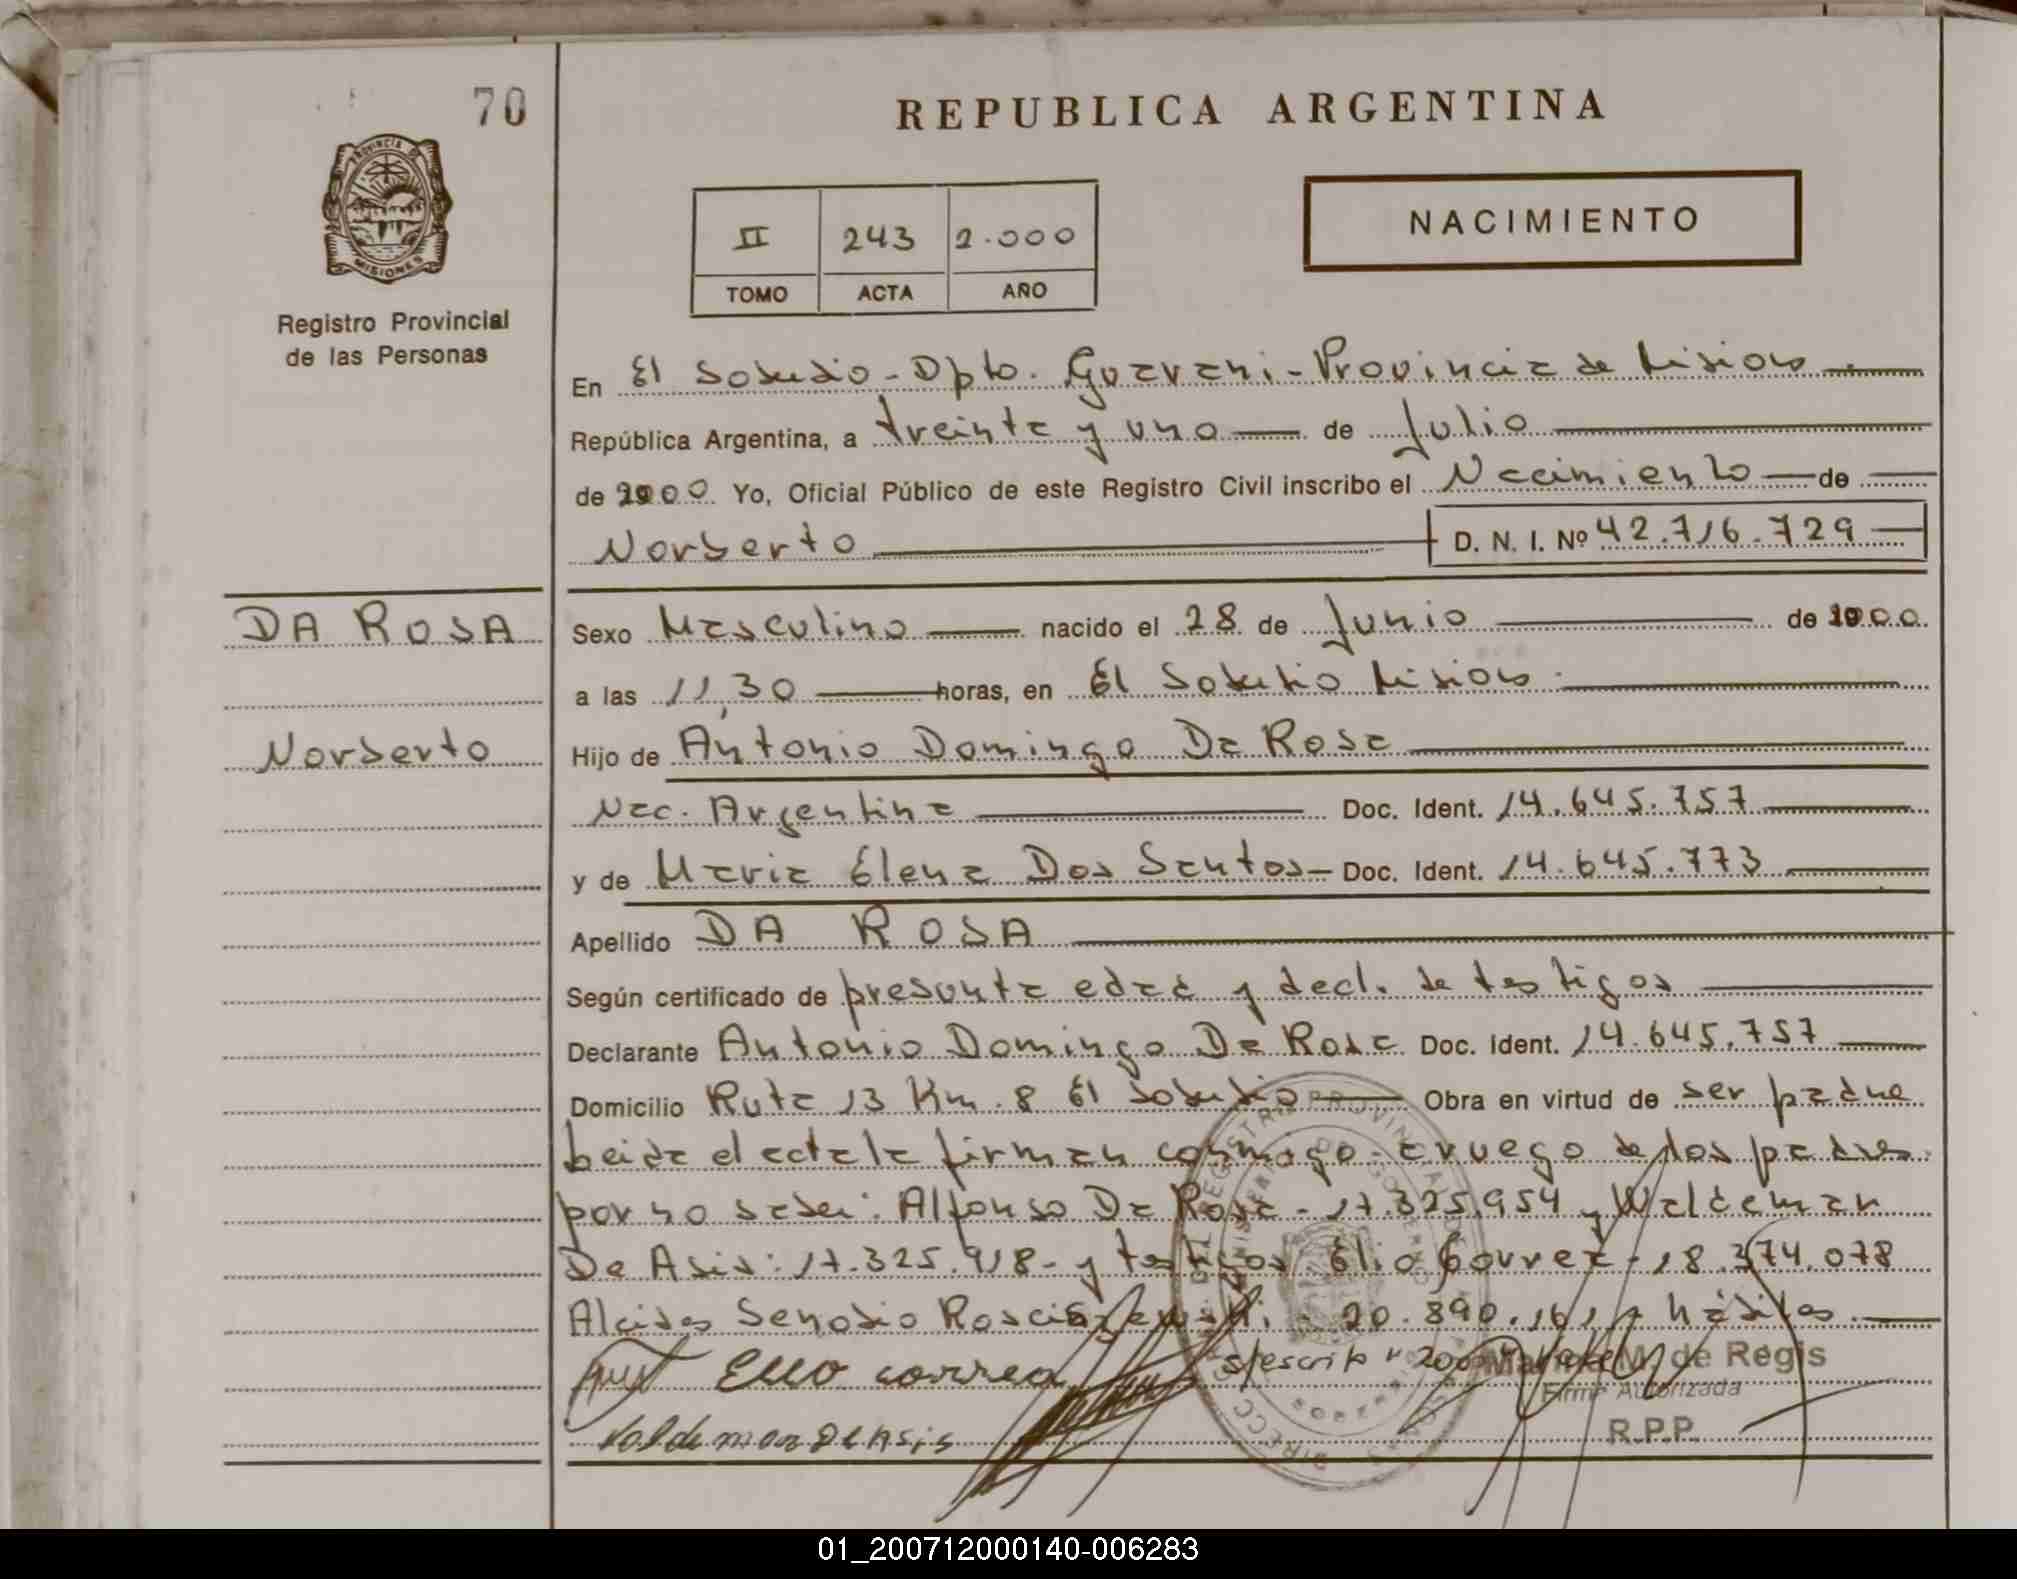 70
REPUBLICA ARGENTINA
PROVINCIA DE
MISIONES
Registro Provincial
de las Personas
II 243 2.000
TOMO ACTA AÑO
NACIMIENTO
En El Soberbio - Dpto. Guarani - Provincia de Misiones
República Argentina, a treinta y uno de Julio
de 2000 Yo, Oficial Público de este Registro Civil inscribo el Nacimiento de
Norberto D. N. I. Nº 42.716.729
DA ROSA
Norberto
Sexo Masculino nacido el 28 de Junio de 2000
a las 11,30 horas, en El Soberbio Misiones
Hijo de Antonio Domingo Da Rosa
Nac. Argentina Doc. Ident. 14.645.757
y de Maria Elena Dos Santos Doc. Ident. 14.645.773
Apellido DA ROSA
Según certificado de presunta edad y decl. de testigos
Declarante Antonio Domingo Da Rosa Doc. Ident. 14.645.757
Domicilio Ruta 13 Km. 8 El Soberbio Obra en virtud de ser padre
Leida el acta la firman conmigo a ruego de los padres
por no saber: Alfonso Da Rosa - 17.325.954 y Waldemar
De Asis: 17.325.918 - y testigos Elio Correa - 18.374.078
Alcides Senobio 20.890.161 hábiles.
Elio correa s/escrito "2000" Vale
M. de Regis
Firma Autorizada
Valdemar de Asis
R.P.P.
01_200712000140-006283